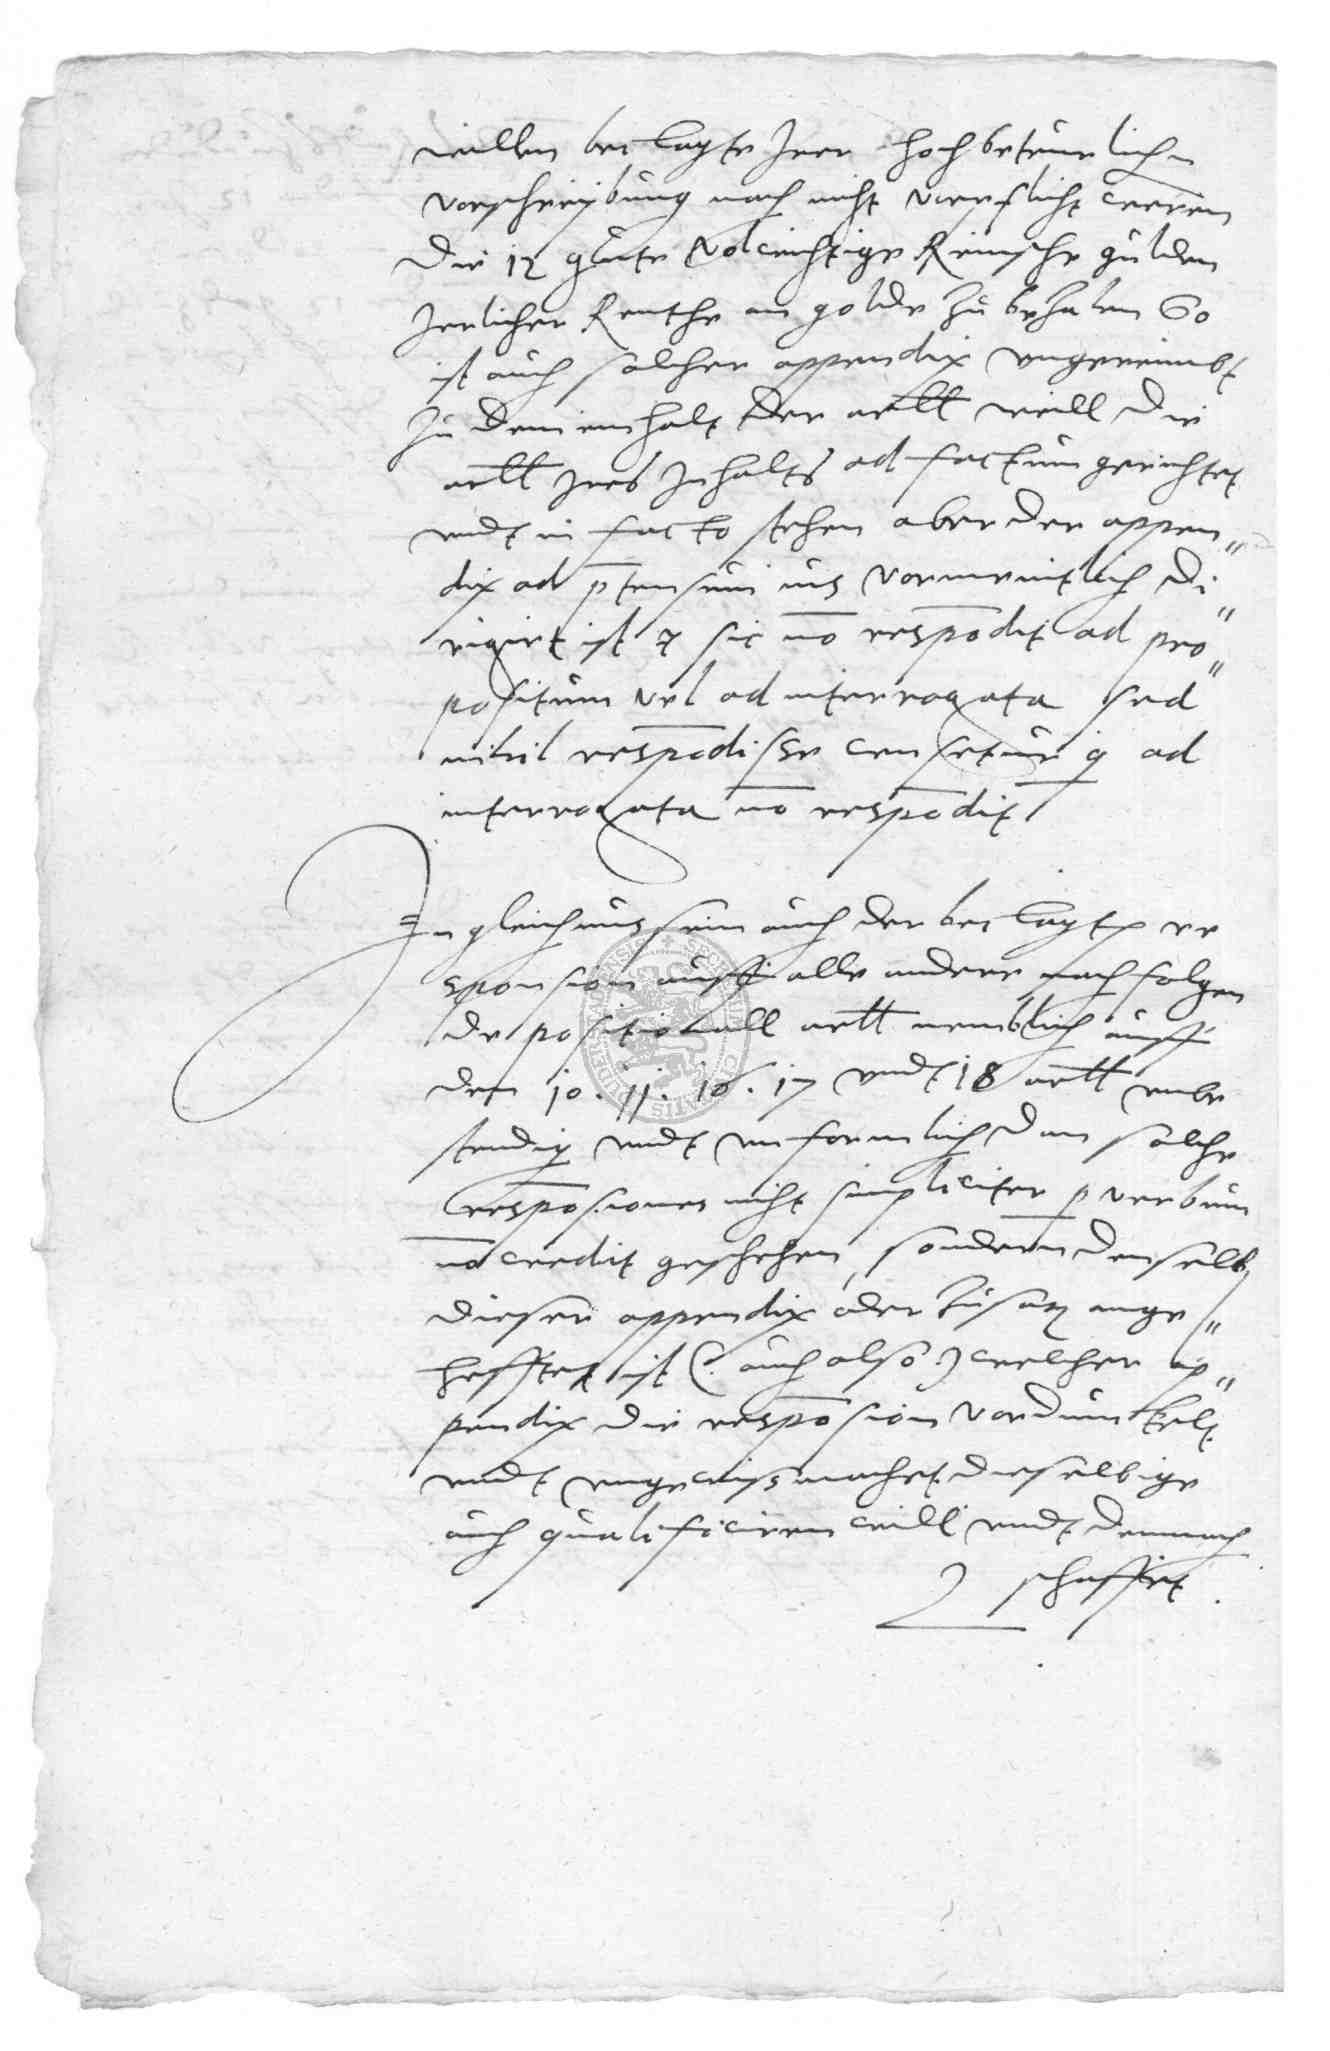 willen beclagte Jrer hochbeteurlichn
vorschreybung nach nicht vorpflicht weren
die 12 gute volwichtige Reinsche gulden
Jerlicher Renthe an golde zu bezalen So
ist auch solcher appendix ungereimbt
zu dem einhalt der artll weill die
artll Jres Jnhalts ad factum gerichtet
undt in facto stehen aber der appen"
dix ad p̄tensum ius vormeintlich di"
rigirt ist & sic nō respōdit ad pro"
positum vel ad interrogata sed
nihil respōdisse censetur q ad
interrogata nō respōdit
Jn gleichnus sein auch der beclagtn re
sponsion auff alle andere nachfolgen
de positionall artll nemblich auff
den 10. 11. 16. 17 undt 18 artll unbe
stendig undt unformlich dan solche
respōsiones nicht simpliciter p verbum
nō credit geschehen, sondern denselb
dieser appendix oder zusatz ange"
hefftet ist (: auch also :) welcher ap"
pendix die respōsion vordunckelt
undt ungewiss machet dieselbige
auch qualificiren will undt demnach
schaffet
SECRETUM CIVITATIS